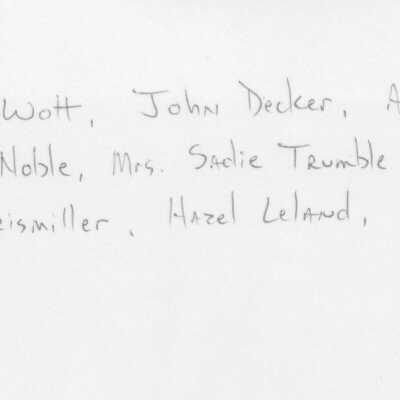 Wott, John Decker, A
Noble, Mrs. Sadie Trumble
eismiller, Hazel Leland,